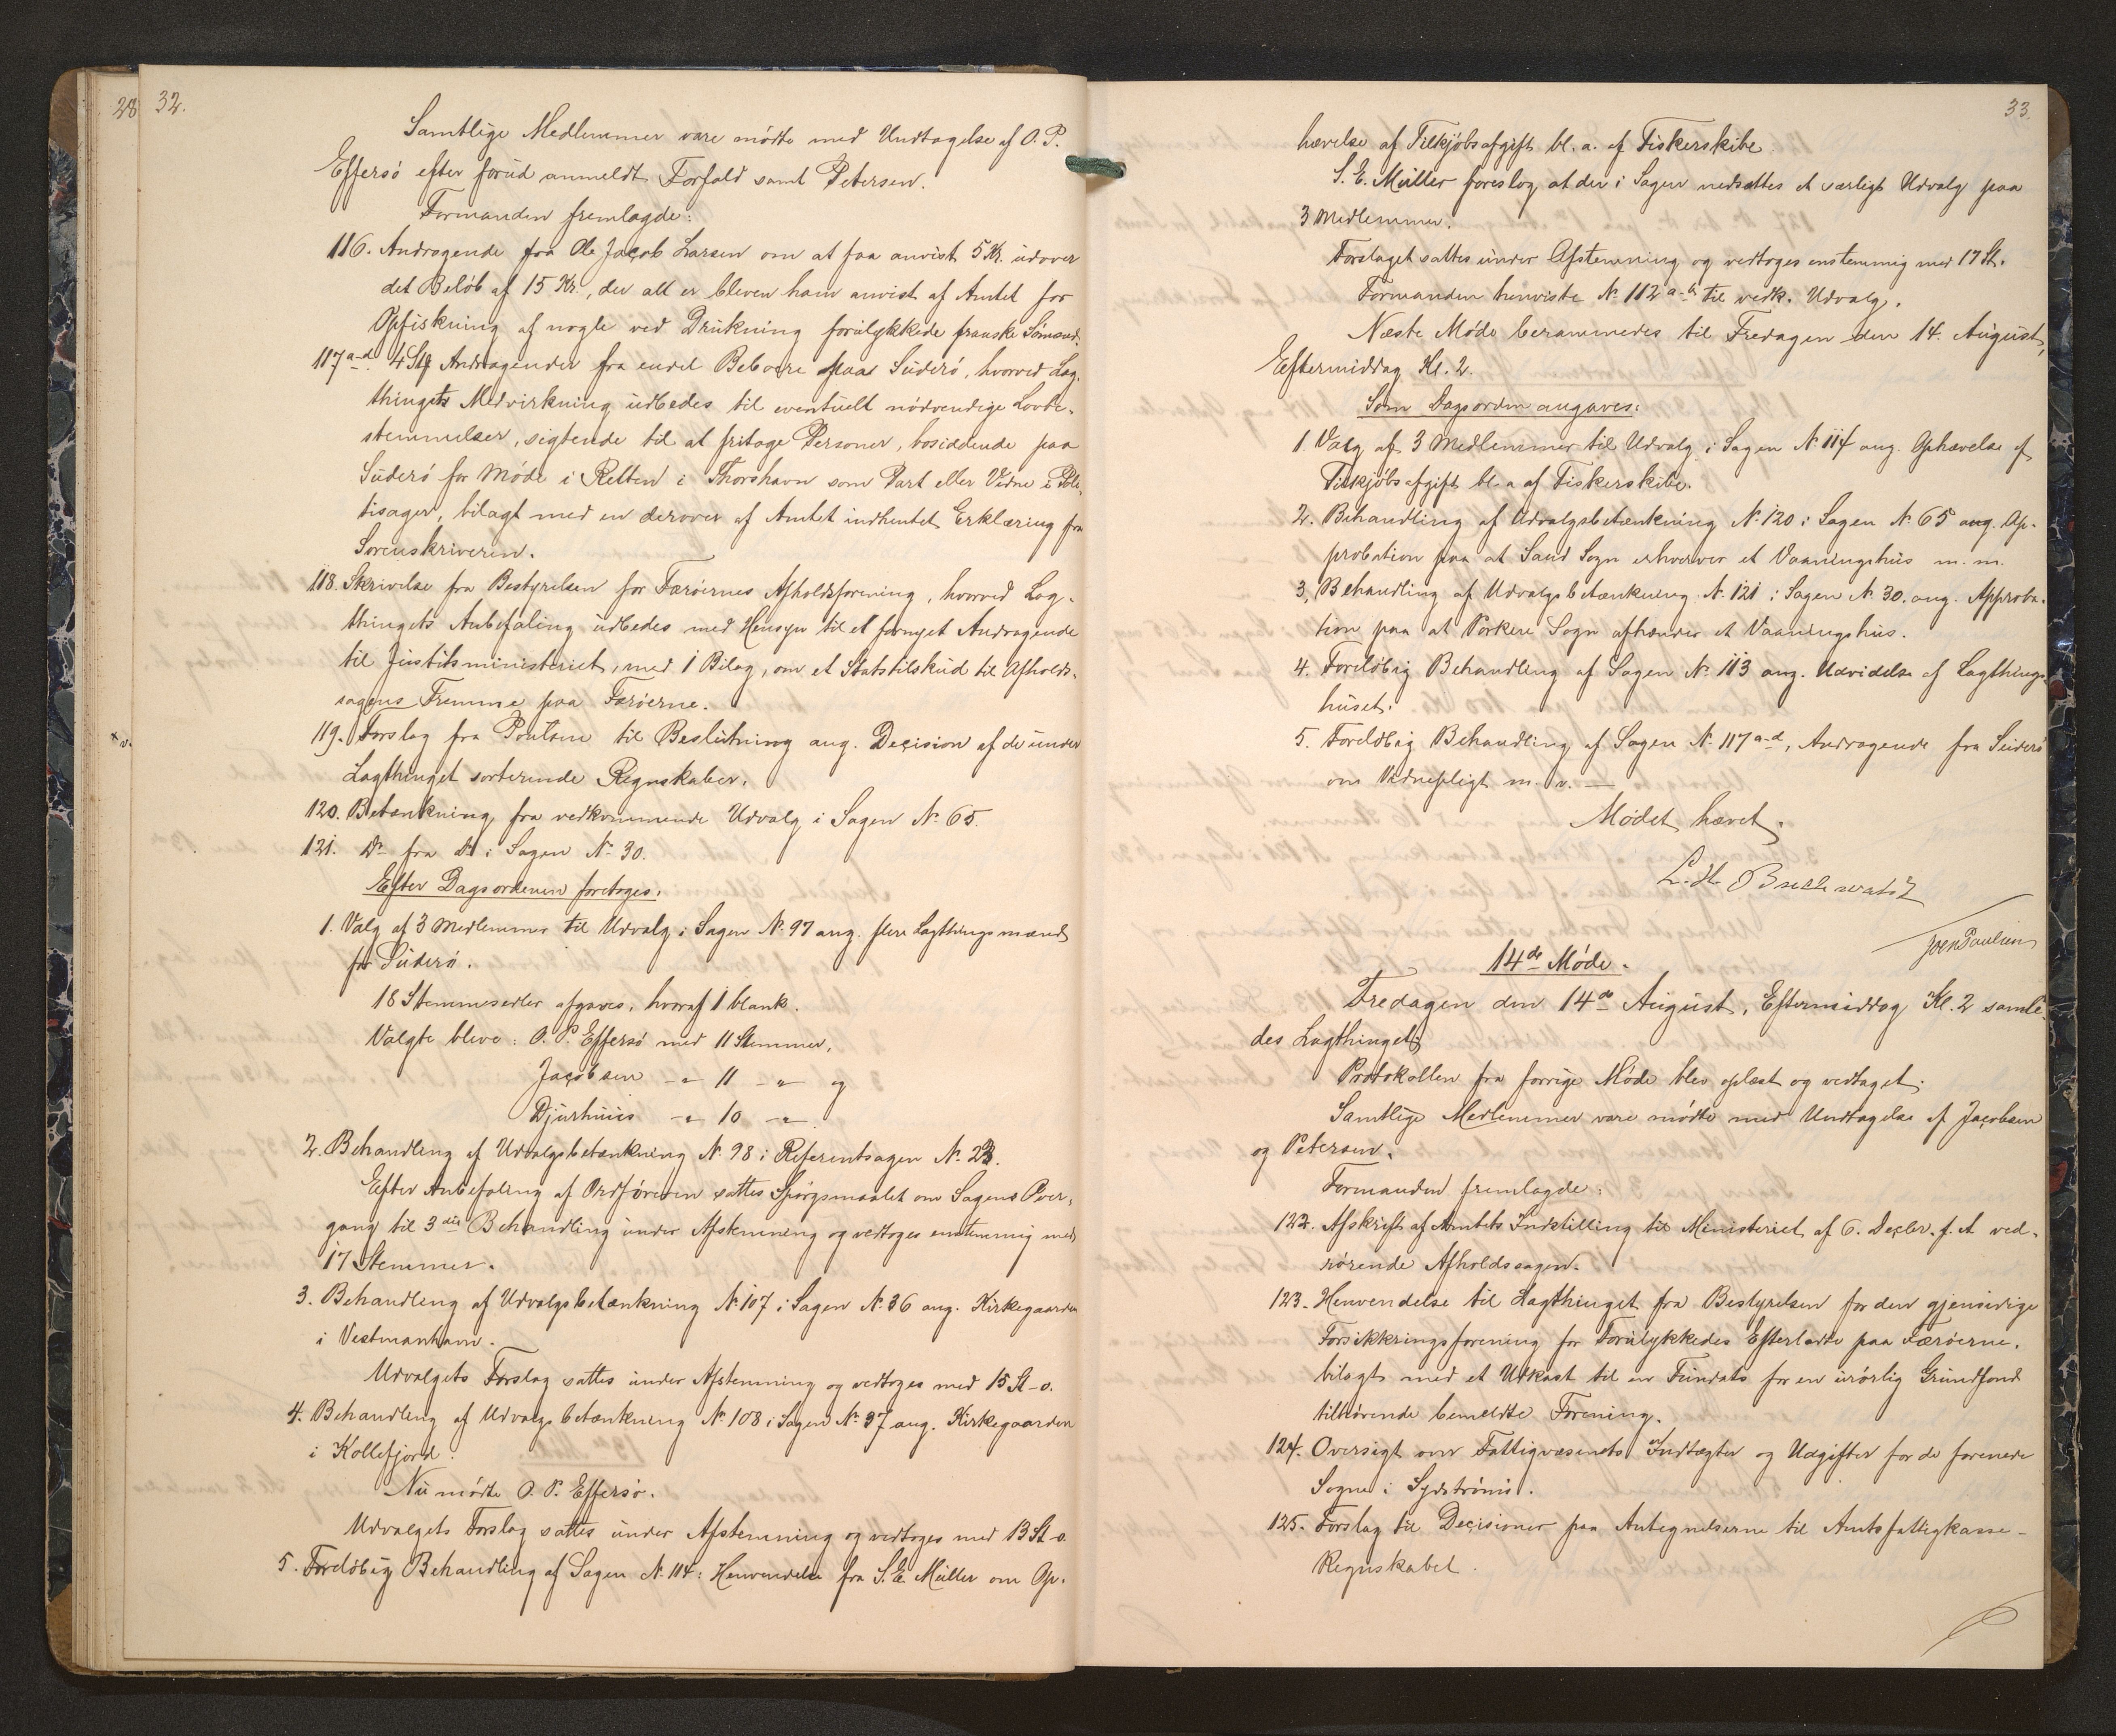 28 32.
Samtlige Medlemmer vare mødte med Undtagelse af O. P.
Effersö efter forud anmeldt Forfald samt Petersen.
Formanden fremlagde:
116. Andragende fra Ole Jacob Larsen om at faa anvist 5 Kr. udover
det Beløb af 15 Kr., der alt er bleven ham anvist af Amtet for
Opfiskning af nogle ved Drukning forulykkede franske Sømænd.
117 a-d. 4 Stk Andragender fra endel Beboere paa Suderö, hvorved Lag-
thingets Medvirkning udbedes til eventuelt nødvendige Lovbe-
stemmelser, sigtende til at fritage Personer, bosiddende paa
Suderö for Møde i Retten i Thorshavn som Part eller Vidne i Poli-
tisager, bilagt med en derover af Amtet indhentet Erklæring fra
Sorenskriveren.
118. Skrivelse fra Bestyrelsen for Færøernes Afholdsforening, hvorved Lag-
thingets Anbefaling udbedes med Hensyn til et fornyet Andragende
til Justitsministeriet, med 1 Bilag, om et Statstilskud til Afholds-
sagens Fremme paa Færøerne.
119. Forslag fra Poulsen til Beslutning ang. Decision af de under
Lagthinget sorterende Regnskaber.
120. Betænkning fra vedkommende Udvalg i Sagen No. 65.
121. Do fra Do i Sagen No. 30.
Efter Dagsordenen foretoges.
1. Valg af 3 Medlemmer til Udvalg i Sagen No. 97 ang. flere Lagthingsmænd
for Suderö.
18 Stemmesedler afgaves, hvoraf 1 blank.
Valgte bleve: O. P. Effersö med 11 Stemmer,
Jacobsen -"- 11 -"- og
Djurhuus -"- 10 -"-.
2. Behandling af Udvalgsbetænkning No. 98 i Referentsagen No. 23.
Efter Anbefaling af Ordføreren sattes Spørgsmaalet om Sagens Over-
gang til 3die Behandling under Afstemning og vedtoges enstemmig med
17 Stemmer.
3. Behandling af Udvalgsbetænkning No. 107 i Sagen No. 36 ang. Kirkegaarden
i Vestmanhavn.
Udvalgets Forslag sattes under Afstemning og vedtoges med 15 St-o.
4. Behandling af Udvalgsbetænkning No. 108 i Sagen No. 37 ang. Kirkegaarden
i Kollefjord.
Nu mødte O. P. Effersö.
Udvalgets Forslag sattes under Afstemning og vedtoges med 13 St-o.
5. Foreløbig Behandling af Sagen No. 114: Henvendelse fra S. E. Müller om Op-
33.
hævelse af Tilkjøbsafgift bl. a. af Fiskerskibe.
S. E. Müller foreslog at der i Sagen nedsættes et særligt Udvalg paa
3 Medlemmer.
Forslaget sattes under Afstemning og vedtoges enstemmig med 17 St.
Formanden henviste No. 112 a-b til vedk. Udvalg.
Næste Møde berammedes til Fredagen den 14. August,
Eftermiddag Kl. 2.
Som Dagsorden angaves:
1. Valg af 3 Medlemmer til Udvalg i Sagen No. 114 ang. Ophævelse af
Tilkjøbsafgift bl. a af Fiskerskibe.
2. Behandling af Udvalgsbetænkning No. 120 i Sagen No. 65 ang. Ap-
probation paa at Sand Sogn erhverver et Vaaningshus m. m.
3. Behandling af Udvalgsbetænkning No. 121 i Sagen No. 30. ang. Approba-
tion paa at Porkere Sogn afhænder et Vaaningshus.
4. Foreløbig Behandling af Sagen No. 113 ang. Udvidelse af Lagthings-
huset.
5. Foreløbig Behandling af Sagen No. 117 a-d, Andragende fra Suderö
om Vidnepligt m. v. —
Mødet hævet.
L. H.
Joen Paulsen
14de Møde.
Fredagen den 14de August, Eftermiddag Kl. 2 samle-
des Lagthinget.
Protokollen fra forrige Møde blev oplæst og vedtaget.
Samtlige Medlemmer vare mødte med Undtagelse af Jacobsen
og Petersen.
Formanden fremlagde:
122. Afskrift af Amtets Indstilling til Ministeriet af 6. Decbr. f. A ved-
rørende Afholdssagen.
123. Henvendelse til Lagthinget fra Bestyrelsen for den gjensidige
Forsikkringsforening for Forulykkedes Efterladte paa Færøerne.
bilagt med et Udkast til en Fundats for en urørlig Grundfond
tilhørende bemeldte Forening.
124. Oversigt over Fattigvæsenets Indtægter og Udgifter for de forenede
Sogne i Sydstrømø.
125. Forslag til Decisioner paa Antegnelserne til Amtsfattigkasse-
Regnskabet.